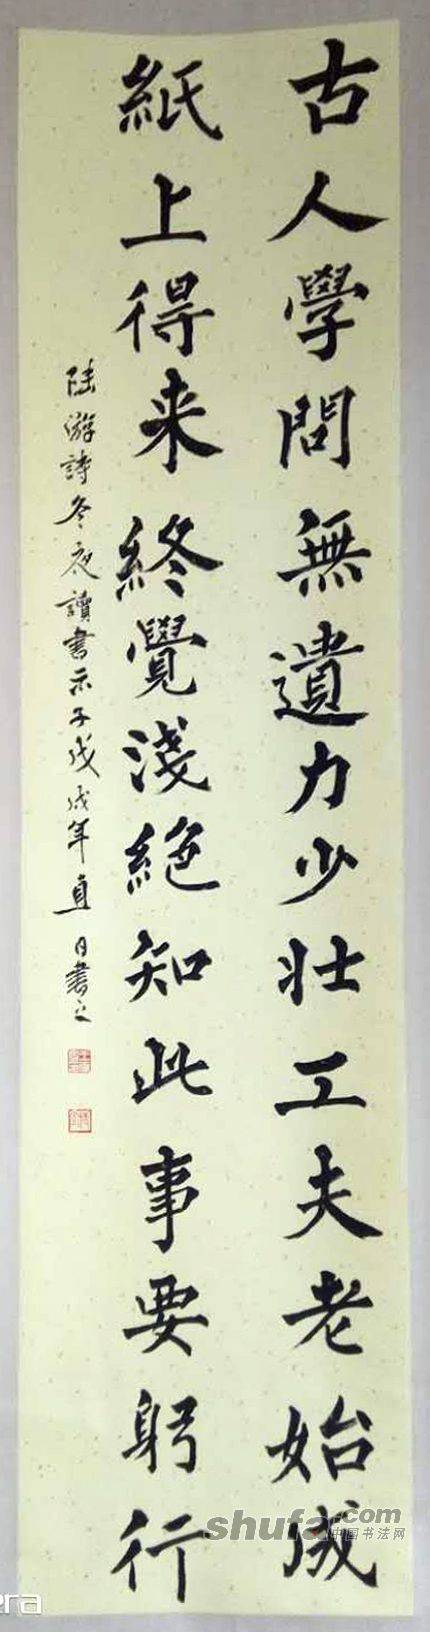 古人學問無遺力少壯工夫老始成
紙上得来終覺淺絕知此事要躬行
陸游詩冬夜讀書示子戊戌年夏日書之
shufa.com
中国书法网
era